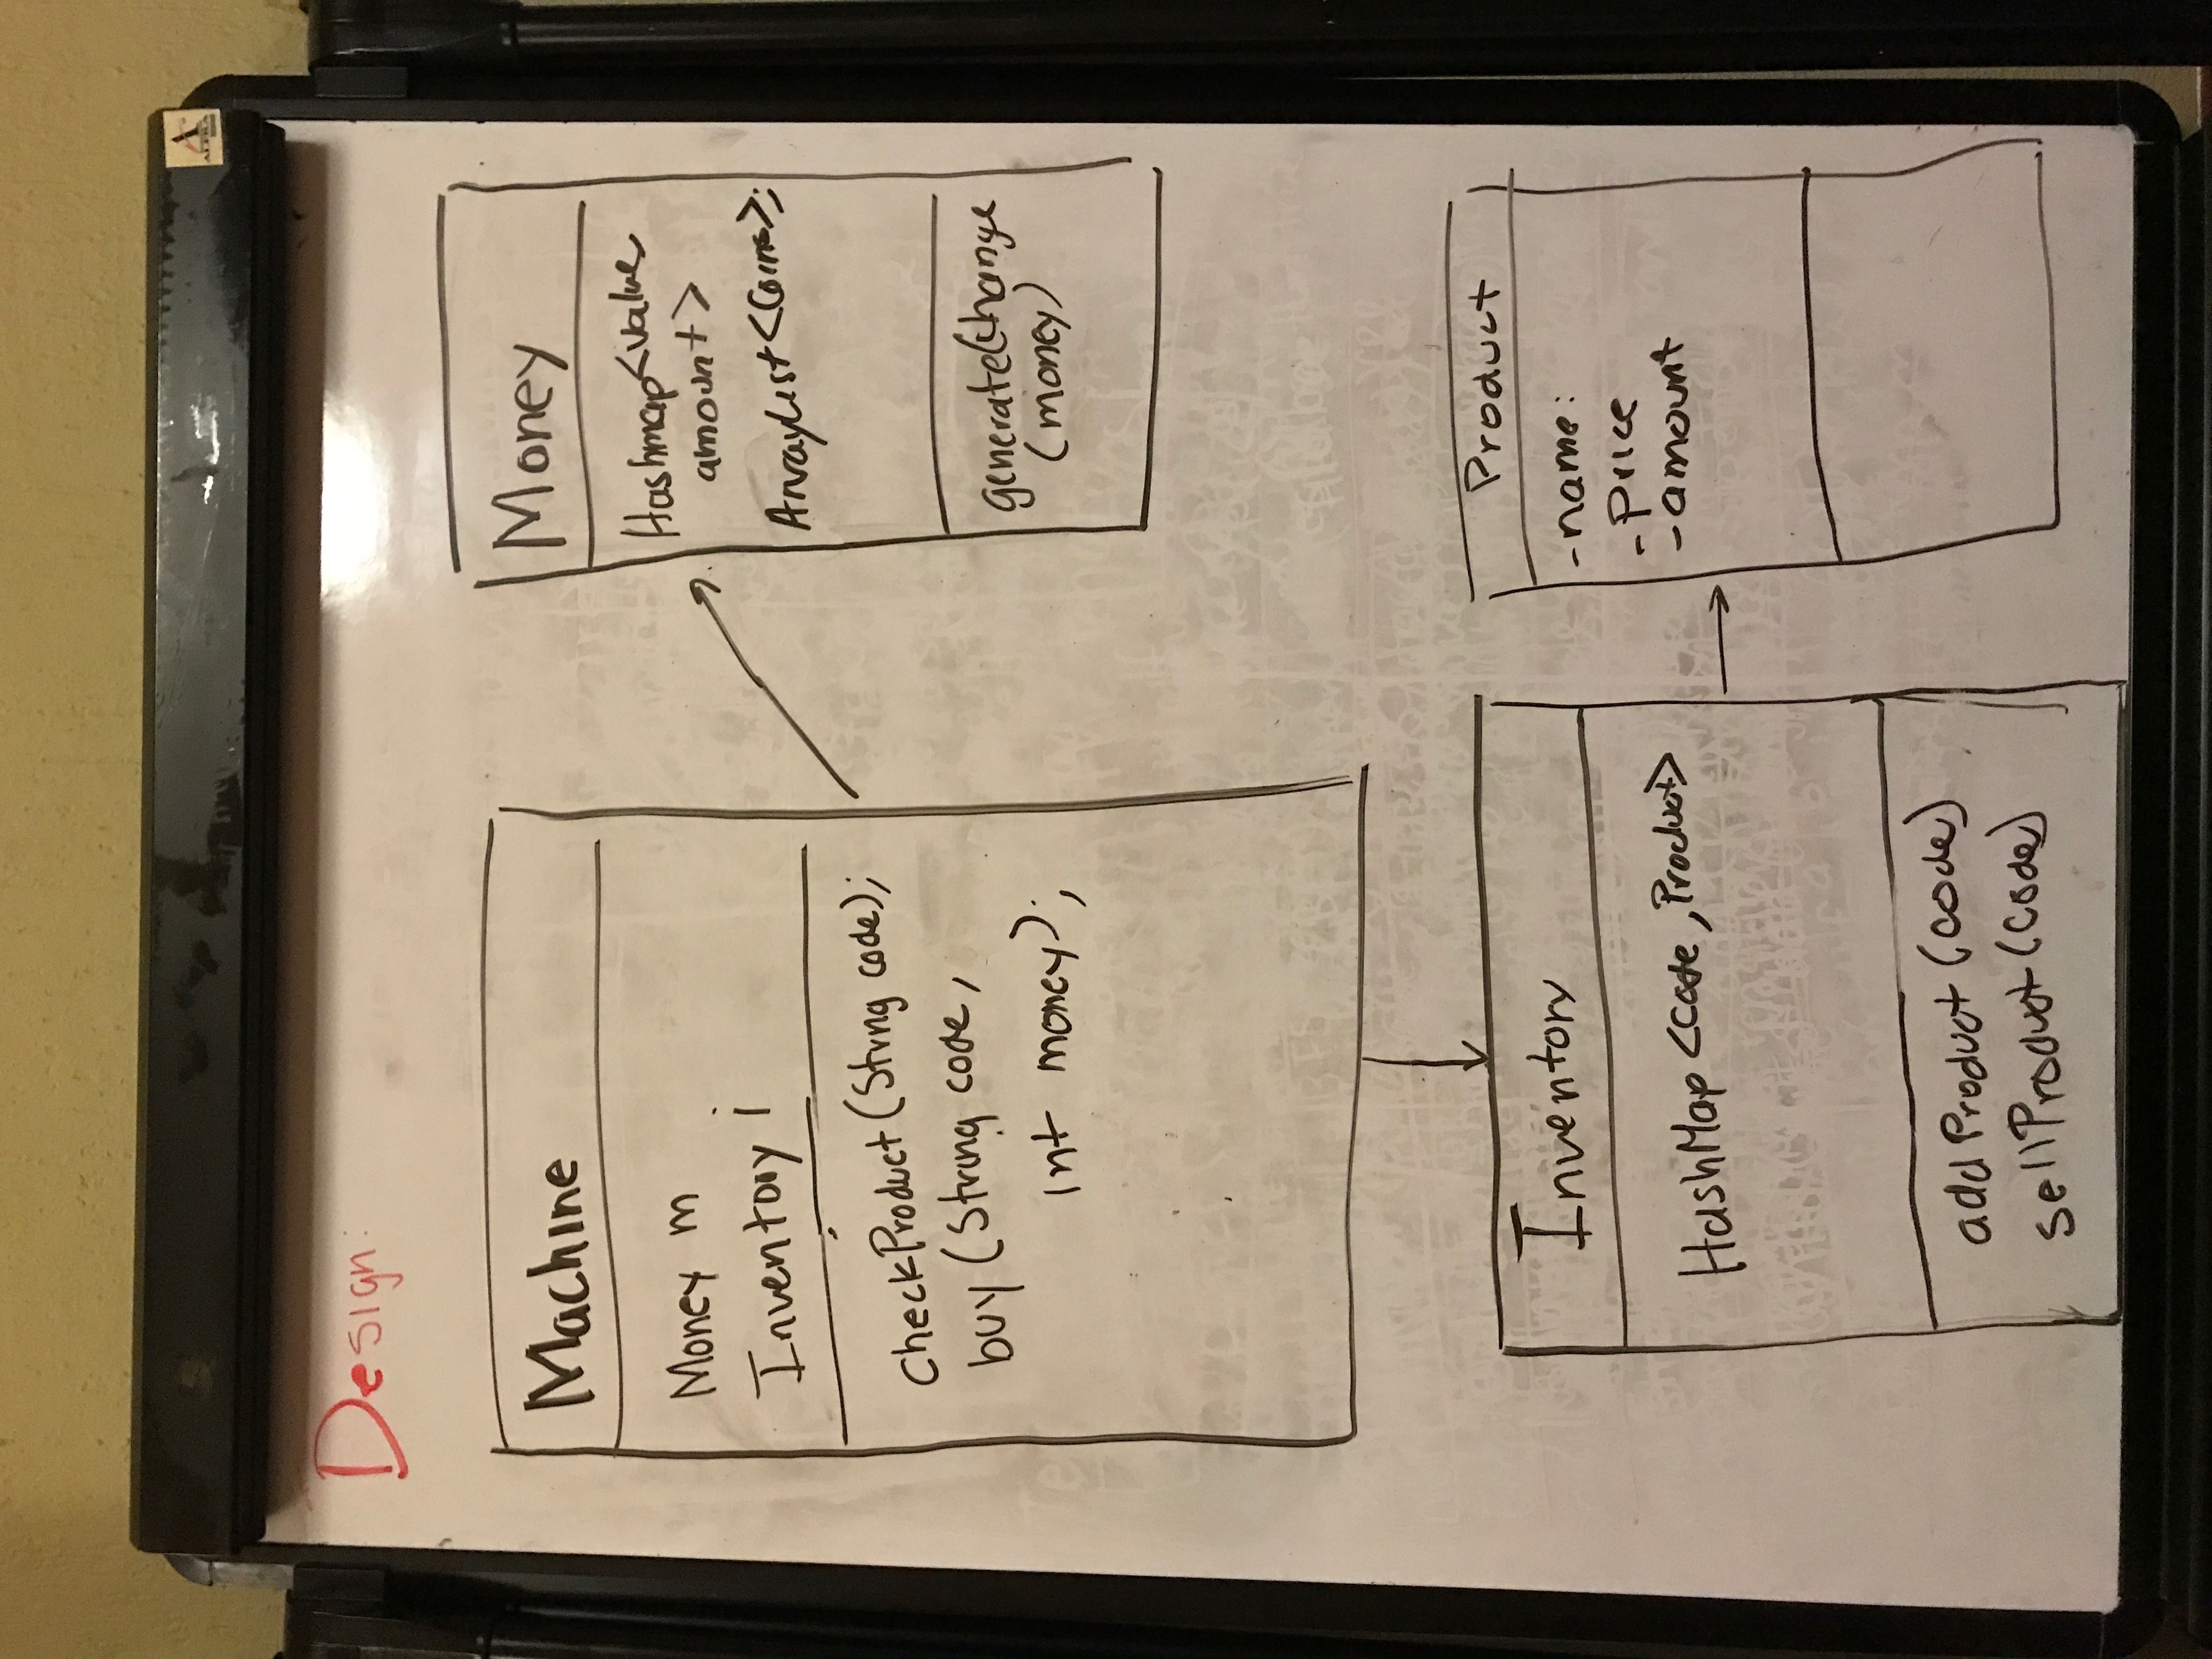 ALPHA
Design:
Machine
Money m
Inventory i
checkProduct (String code);
buy (String code,
int money);
Money
Hashmap<value,
amount>
ArrayList<Coins>;
generateChange
(money)
Inventory
HashMap <Code, Product>
addProduct (code)
sellProduct (Code)
Product
-name:
-price
-amount